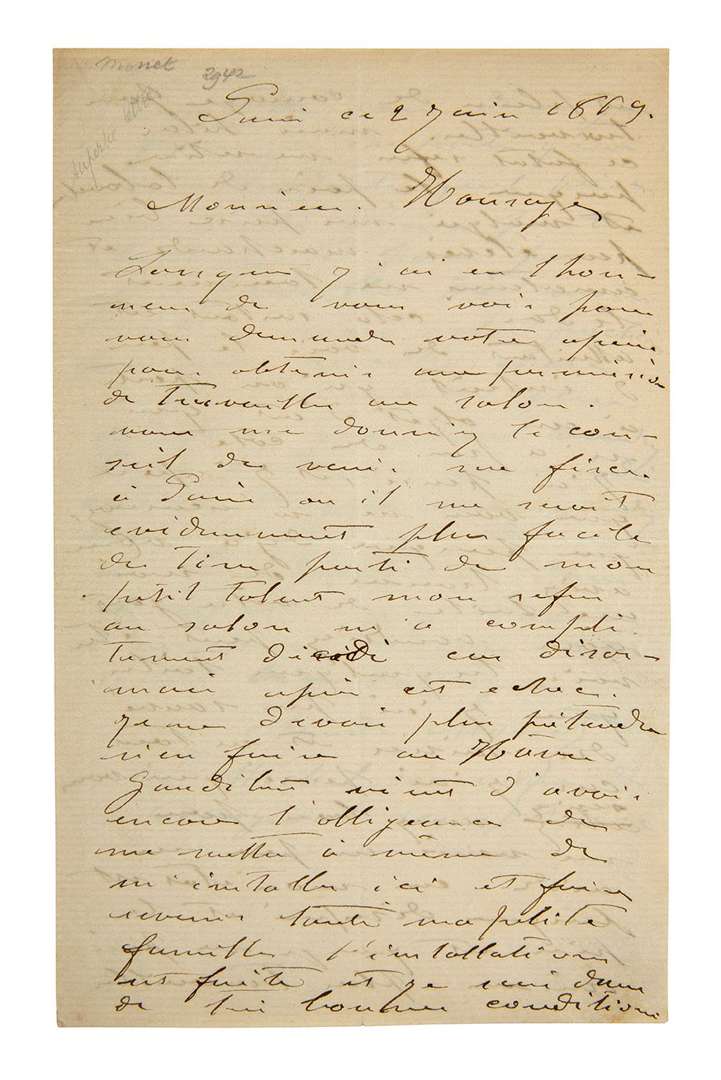 Monet 2942
superbe lettre
Paris ce 2 Juin 1869.
Monsieur Houssaye
Lorsque j'ai eu l'hon-
neur de vous voir pour
vous demander votre appui
pour obtenir une permission
de travailler au salon.
vous me donniez le con-
seil de venir me fixer
à Paris ou il me serait
evidemment plus facile
de tirer parti de mon
petit talent mon refus
au salon m'a complè
tement décidé car désor-
mais après cet echec.
je ne devais plus prétendre
rien faire au Hâvre
Gaudibert vient d'avoir
encore l'obligeance de
me mettre à même de
m'installer ici et faire
revenir toute ma petite
famille l'installation
est faite et je suis dans
de très bonnes conditions